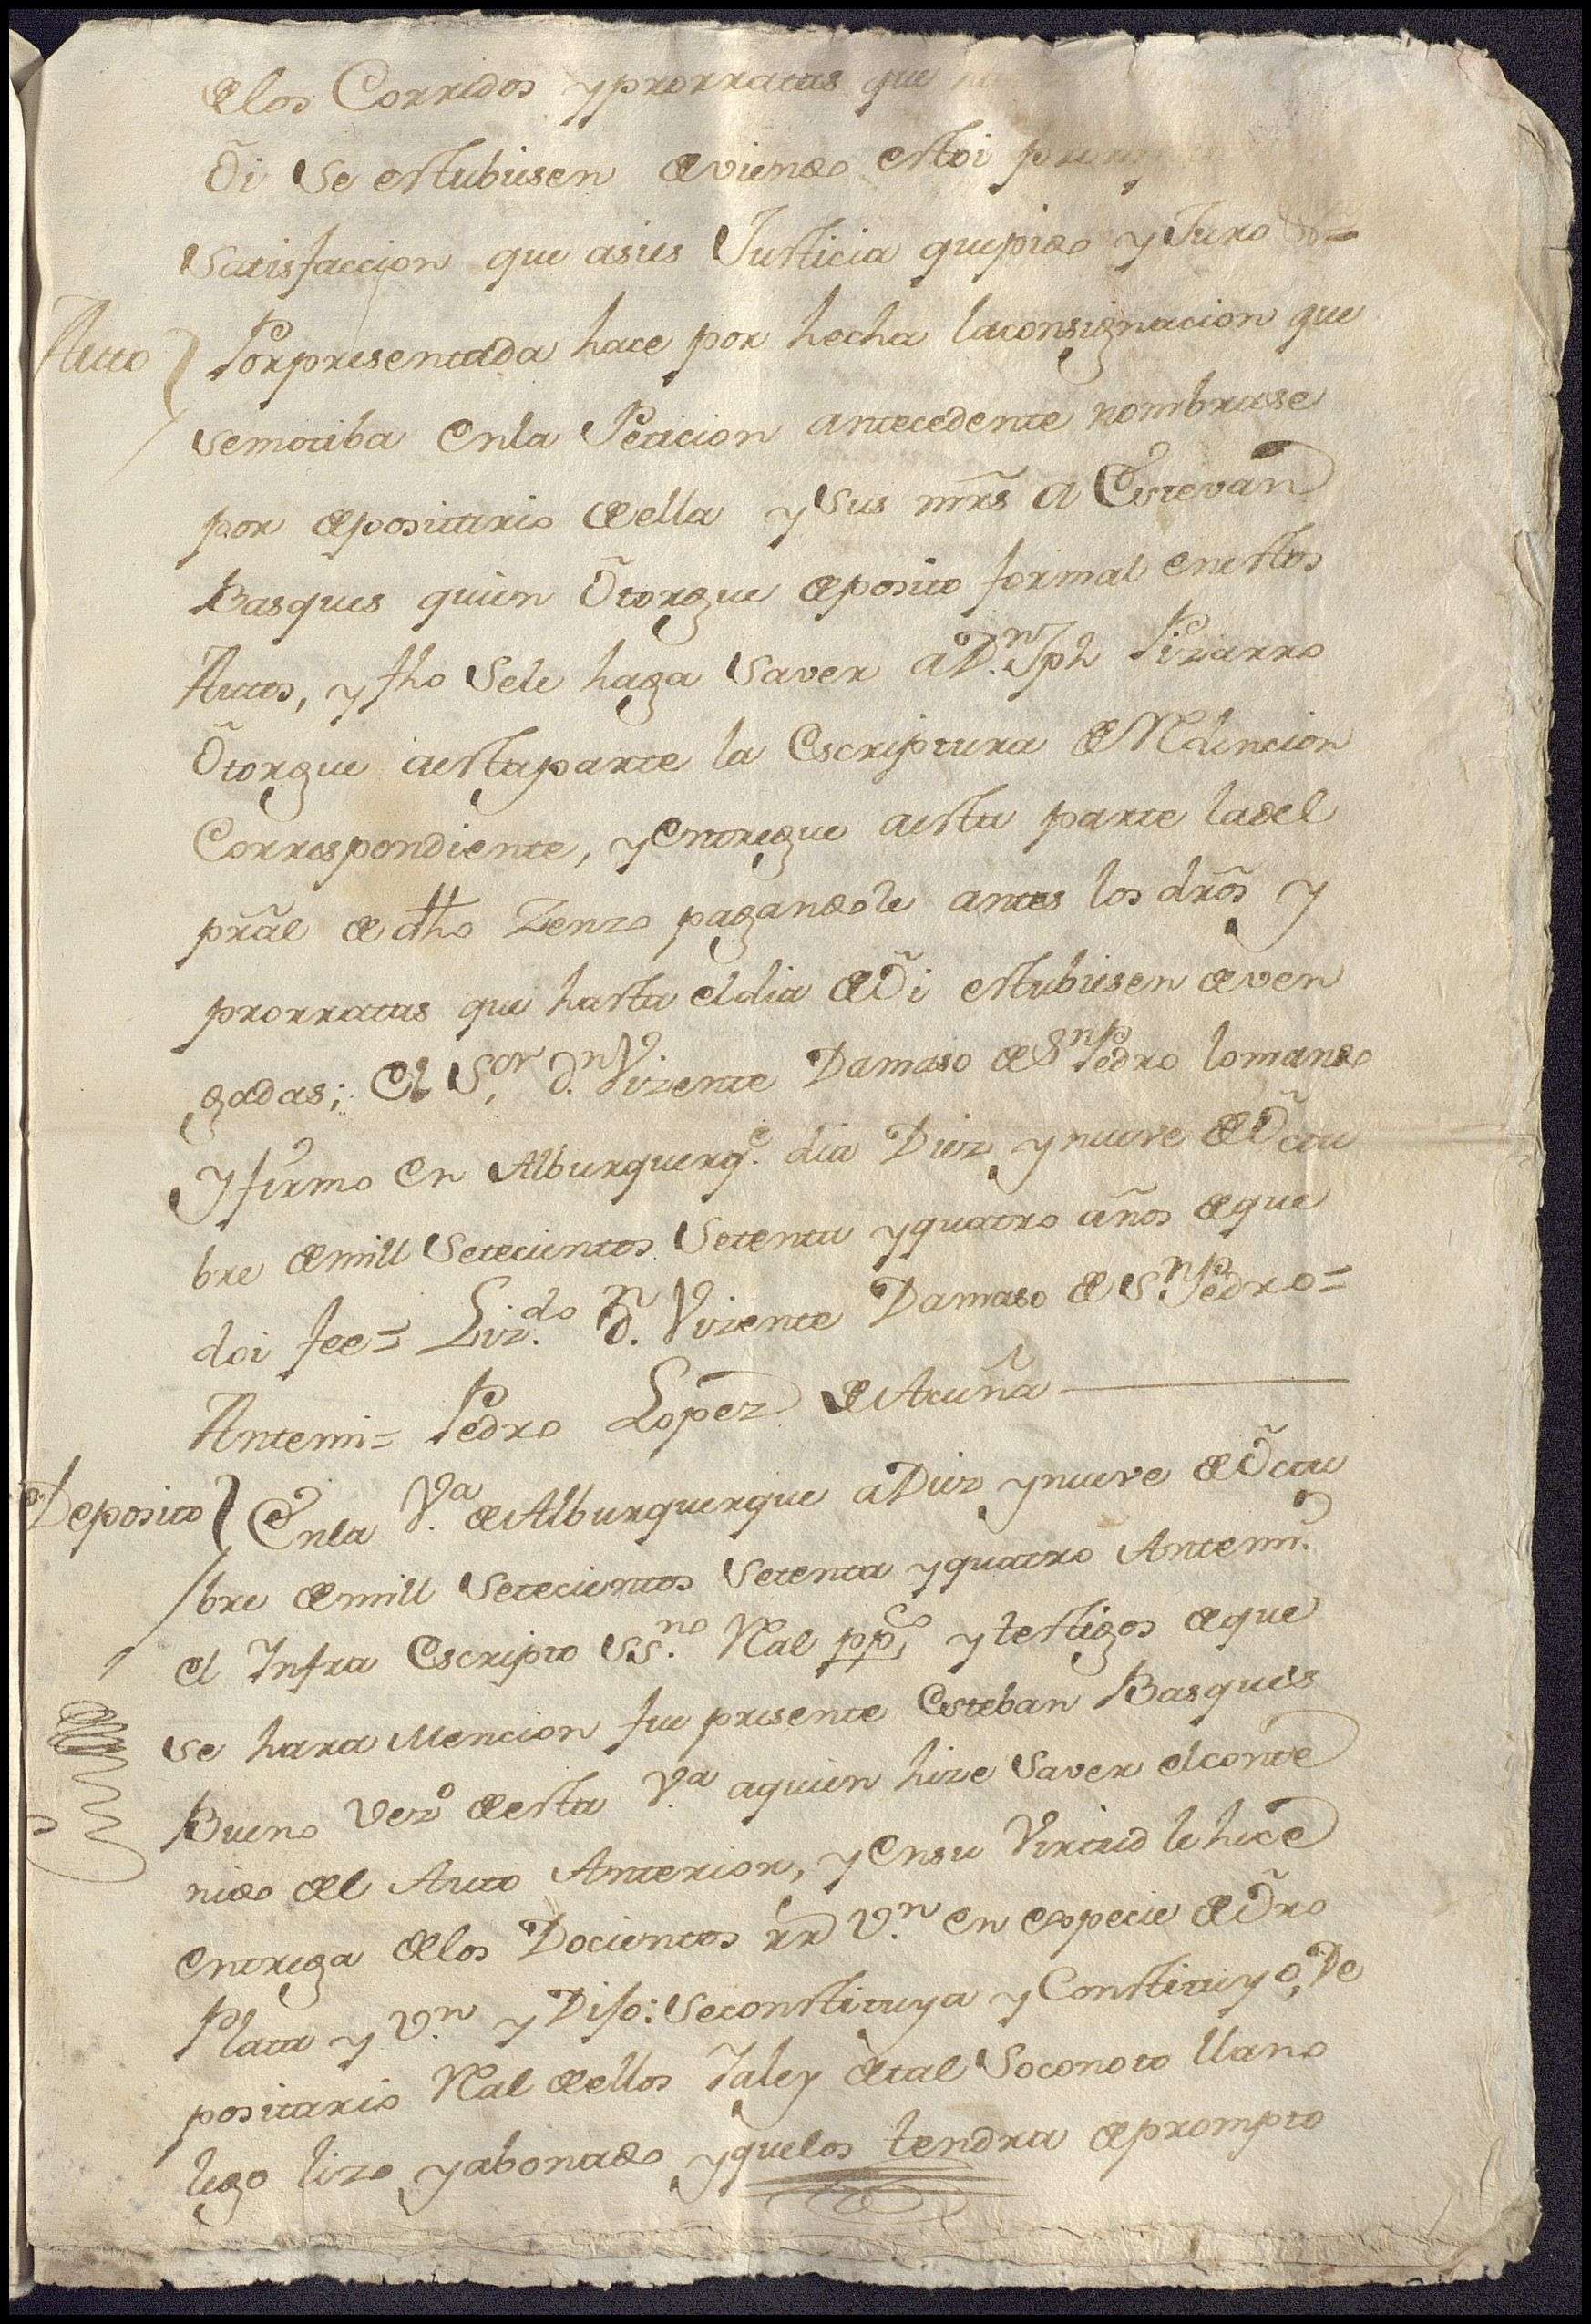 delos Corridos yprorratas que
Õi se estubiesen deviendo estoi
satisfaccion que asies Justicia quepido y Juro &=
Auto } Porpresentada hace por hecha laconsignacion que
semotiba enla Peticion antecedente nombrase
por depositario deella y sus mr̃s a Estevan
Basques quien Õtorgue deposito formal enestos
Autos, y fho sele haga saver a D.n Jph Pizarro
Õtorgue aestaparte la Escriptura de Redencion
Correspondiente, yentregue aesta parte ladel
prãl de dho Zenzo pagandole antes los dr̃os y
prorratas que hasta eldia de Õi estubiesen deven
gadas; el S.or d.n Vizente Damaso de S.n Pedro lomando
yfirmo en Alburquerq.e dia Diez y nueve de Õctu
bre demill setecientos setenta yquatro años deque
doi fee= Liz.do d.n Vizente Damaso de S.n Pedro=
Antemi= Pedro Lopez de Acuña
Deposito } Enla V.a de Alburquerque a Diez ynueve de Õctu
bre demill setecientos setenta yquatro Antemi
el Infra escripto ss.no Real pp.co y testigos deque
se hara mencion fue presente Esteban Basques
Bueno vez.o deesta V.a aquien hize saver elconte
nido del Auto Anterior, yensu virtud le hice
entrega delos Docientos rr̃ v.n en especie de Õro
Plata y v.n y Dijo: seconstituya y Constituyo, De
positario Real deellos Yaley detal soconoto llano
lego lizo yabonado yquelos tendra deprompto